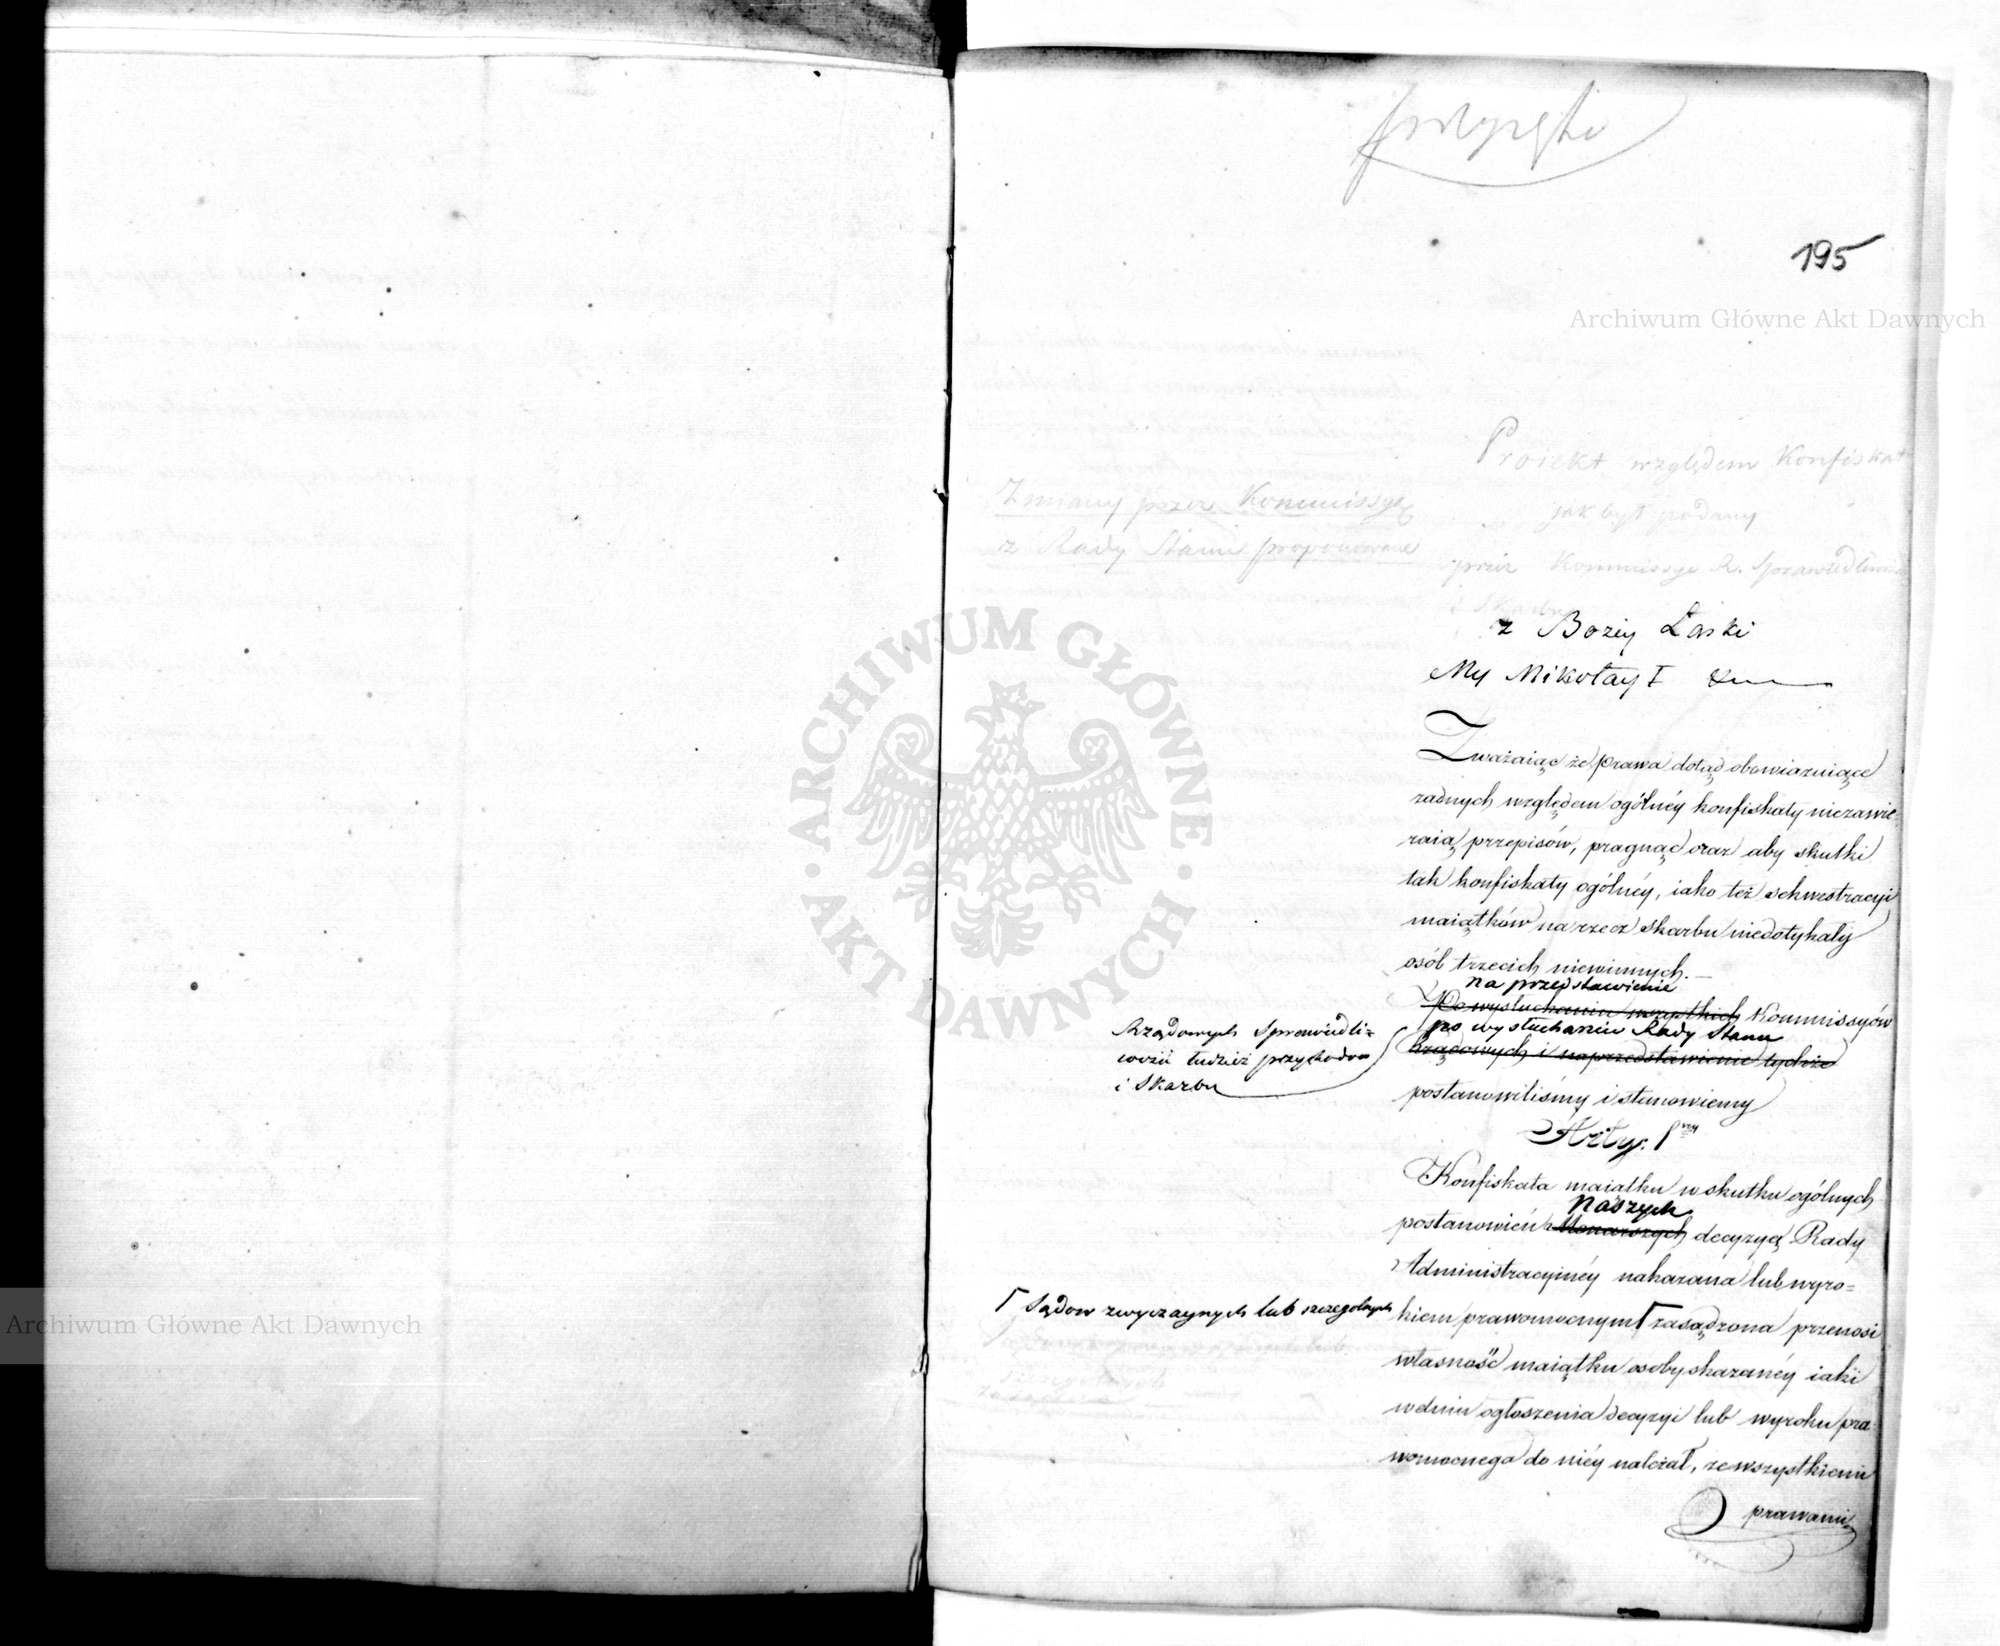 195
Archiwum Główne Akt Dawnych
Projekt względem Konfiskat
jak był podany
przez Kommissye R. Sprawiedliwości
i Skarbu
Zmiany przez Kommissyę
z Rady Stanu proponowane
z Bożey Łaski
My Mikołay I
Zważaiąc że prawa dotąd obowiązuiące
żadnych względem ogólnéy konfiskaty niezawie-
raią przepisów, pragnąc oraz aby skutki
tak konfiskaty ogólnéy, iako też sekwestracyi
maiątków na rzecz skarbu niedotykały
osób trzecich niewinnych. —
na przedstawienie
Po wysłuchaniu wszystkich Kommissyów
po wysłuchaniu Rady Stanu
Rządowych i na przedstawienie tychże
Rządowych Sprawiedli-
wości tudzież przychodów
i Skarbu
postanowiliśmy i stanowiemy
Arty: 1wszy
Konfiskata maiątku w skutku ogólnych
Naszych
postanowień Monarszych decyzyą Rady
Administracyinéy nakazana lub wyro-
kiem prawomocnym Γ zasądzona przenosi
Γ Sądow zwyczaynych lub szczegolnych
własność maiątku osoby skazanéy iaki
w dniu ogłoszenia decyzyi lub wyroku pra
womocnego do niéy należał, ze wszystkiemi
prawami
ARCHIWUM GŁÓWNE AKT DAWNYCH
Archiwum Główne Akt Dawnych